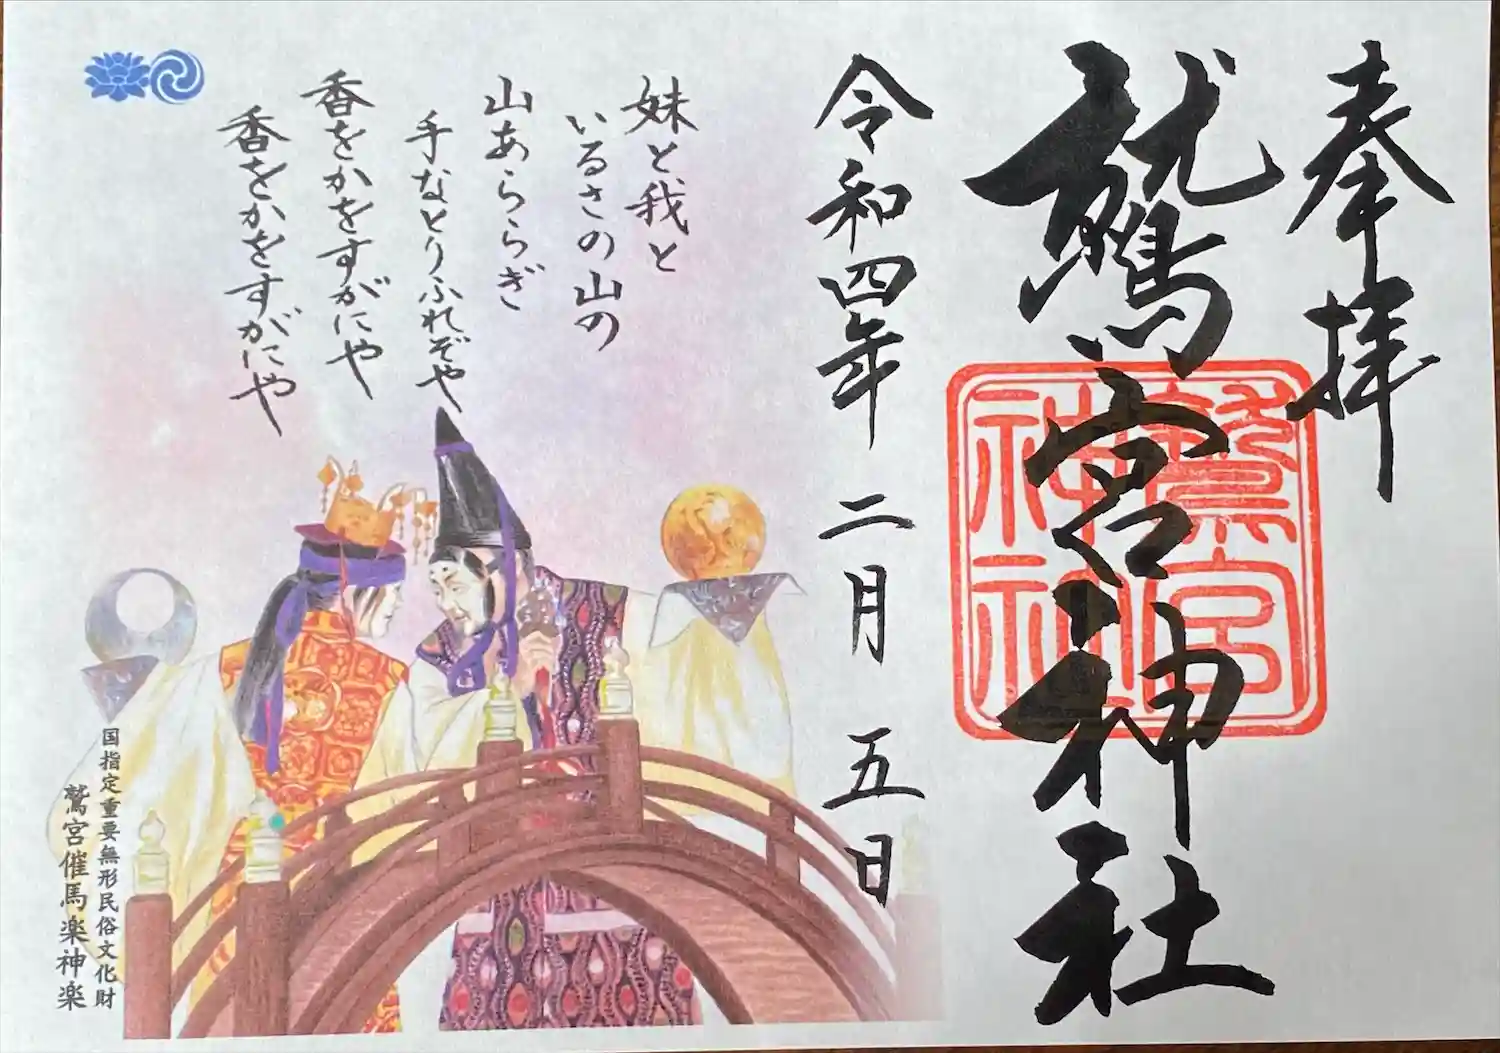 奉拝
鷲宮神社
鷲宮
神社
令和四年 二月 五日
妹と我と
いるさの山の
山あららぎ
手なとりふれぞや
香をかをすがにや
香をかをすがにや
国指定重要無形民俗文化財
鷲宮催馬楽神楽